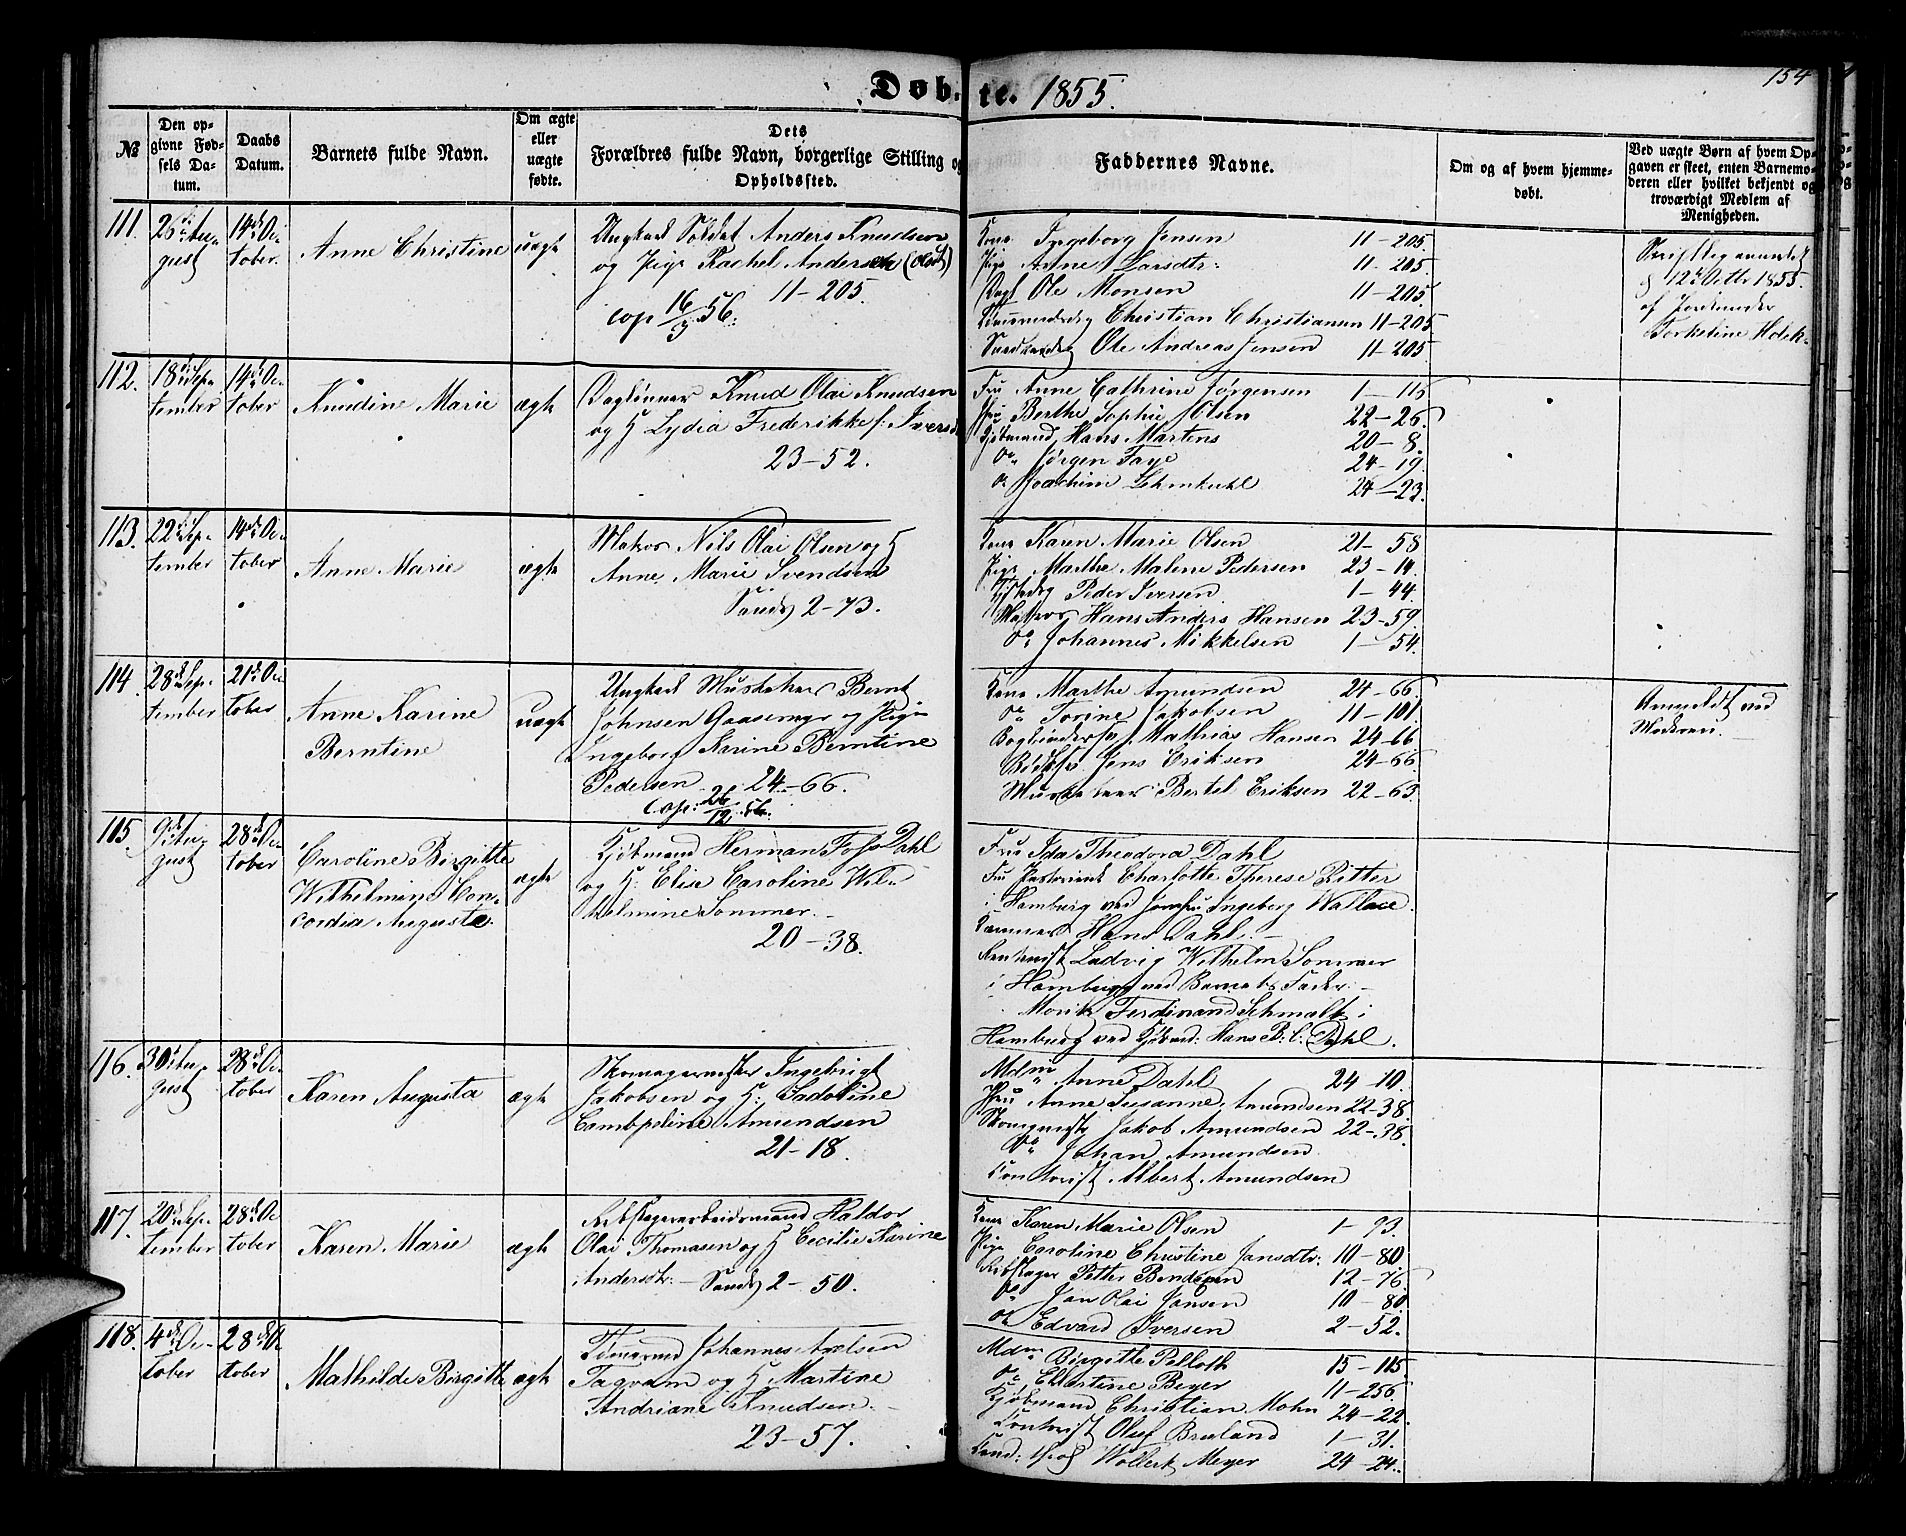 154
Døb- te. 1855.
№
Den op-
givne Fød-
sels Da-
tum.
Daabs
Datum.
Barnets fulde Navn.
Om ægte
eller
uægte
fødte.
Dets
Forældres fulde Navn, borgerlige Stilling og
Opholdssted.
Faddernes Navne.
Om og af hvem hjemme-
døbt.
Ved uægte Børn af hvem Op-
gaven er skeet, enten Barnemo-
deren eller hvilket bekjendt og
troværdigt Medlem af
Menigheden.
111.
26 Au-
gust
14de Oc-
tober.
Anne Christine
uægte
Ungkarl Soldat Anders Knudsen
og Pige Rachel Andersen
11-205.
cop 16/3 56.
Kone Ingeborg Jensen 11-205.
Pige Anne Larsdtr: 11-205.
Ole Monsen 11-205.
Christian Christiansen 11-205
Ole Andreas Jensen 11-205
12 Octbr 1855.
af Jordmoder
Torkeline
112.
18de Sep-
tember
14de Oc-
tober
Knudine Marie
ægte
Dagleinner Knud Olai Knudsen
og H Lydia Frederikke f: Iversen
23-52.
Fru Anne Cathrine Jørgensen 1-115
Fru Berthe Sophie Olsen 22-26.
Kjøbmand Hans Martens 20-8.
Do Jørgen Faye 24-19.
Do Joachim Lehmkuhl 24-23.
113.
22de Sep-
tember
14de Oc-
tober
Anne Marie
ægte
Matros Nils Olai Olsen og H
Anne Marie Svendsen
Sandv 2-73.
Kone Karen Marie Olsen 21-58
Pige Marthe Malene Pedersen 23-14.
Peder Iversen 1-44.
Matros Hans Anders Hansen 23-59.
Do Johannes Mikkelsen 1-54.
114.
28de Sep-
tember
21de Oc-
tober
Anne Karine
Berntine
uægte
Ungkarl Musketeer Bernt
Johnsen Gaasemyr og Pige
Ingeborg Karine Berntine
Pedersen 24-66.
Cop: 26/12 56.
Kone Marthe Amundsen 24-66.
Do Torine Jakobsen 11-101.
Mathias Hansen 24-66
Jens Eriksen 24-66
Bertel Eriksen 22-63.
Anmeldt ved
Moderen.
115.
9de Au-
gust
28de Oc-
tober
Caroline Birgitte
Wilhelmine Con-
cordia Augusta.
ægte
Kjøbmand Herman Dahl
og H: Elise Caroline Wil-
helmine Sommer.
20-38.
Fru Ida Theodora Dahl
Fru Charlotte Therese Ritter
i Hamburg ved Jomfru Ingeborg Wallace.
Hans Dahl.
Ludvig Wilhelm Sommer
i Hamburg ved Barnets Fader.
Moritz Ferdinand Schmalt i
Hamburg ved Kjøbmd: Hans B. C. Dahl.
116.
30 Au-
gust
28de Oc-
tober
Karen Augusta
ægte
Skomagermester Ingebrigt
Jakobsen og H: Sadoline
Amundsen
21-18.
Mdm Anne Dahl 24-10.
Fru Anne Susanne Amundsen 22-38.
Skomgrmstr Jakob Amundsen 22-38.
Do Johan Amundsen
Contorist Albert Amundsen
117.
20de Sep-
tember
28de Oc-
tober
Karen Marie
ægte
Rebslagerarbeidsmand Haldor
Olai Thomasen og H Cecilie Karine
Andersdtr: Sandv 2-50.
Kone Karen Marie Olsen 1-93.
Pige Caroline Christine Jansdtr: 10-80
Rebslager Petter Bendixen 12-76.
Do Jan Olai Jansen 10-80.
Do Edvard Iversen 2-52.
118.
4de Oc-
tober
28de Oc
tober
Mathilde Birgitte
ægte
Tømmermd Johannes Axelsen
Tagvam og H Martine
Andriane Knudsen.
23-57.
Mdm Birgitte Pelloth 15-115
Do Christine Beyer 11-256
Kjøbmand Christian Mohn 24-22.
Contorist Oluf Bruland 1-31.
Cand: Wollert Meyer 24-24.